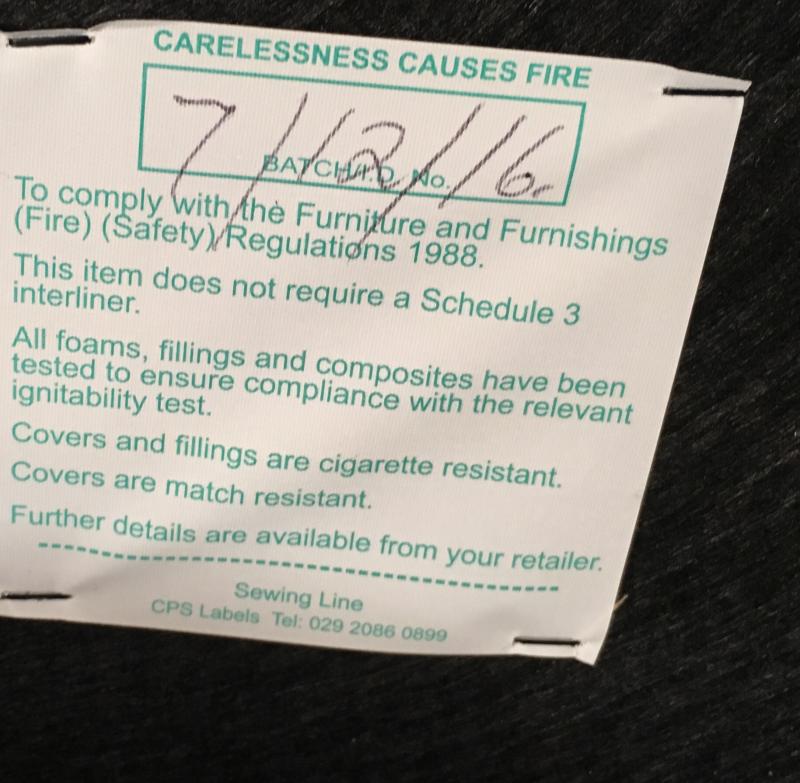 CARELESSNESS CAUSES FIRE
7/12/16.
BATCH/I.D. No.
To comply with the Furniture and Furnishings
(Fire) (Safety) Regulations 1988.
This item does not require a Schedule 3
interliner.
All foams, fillings and composites have been
tested to ensure compliance with the relevant
ignitability test.
Covers and fillings are cigarette resistant.
Covers are match resistant.
Further details are available from your retailer.
Sewing Line
CPS Labels Tel: 029 2086 0899